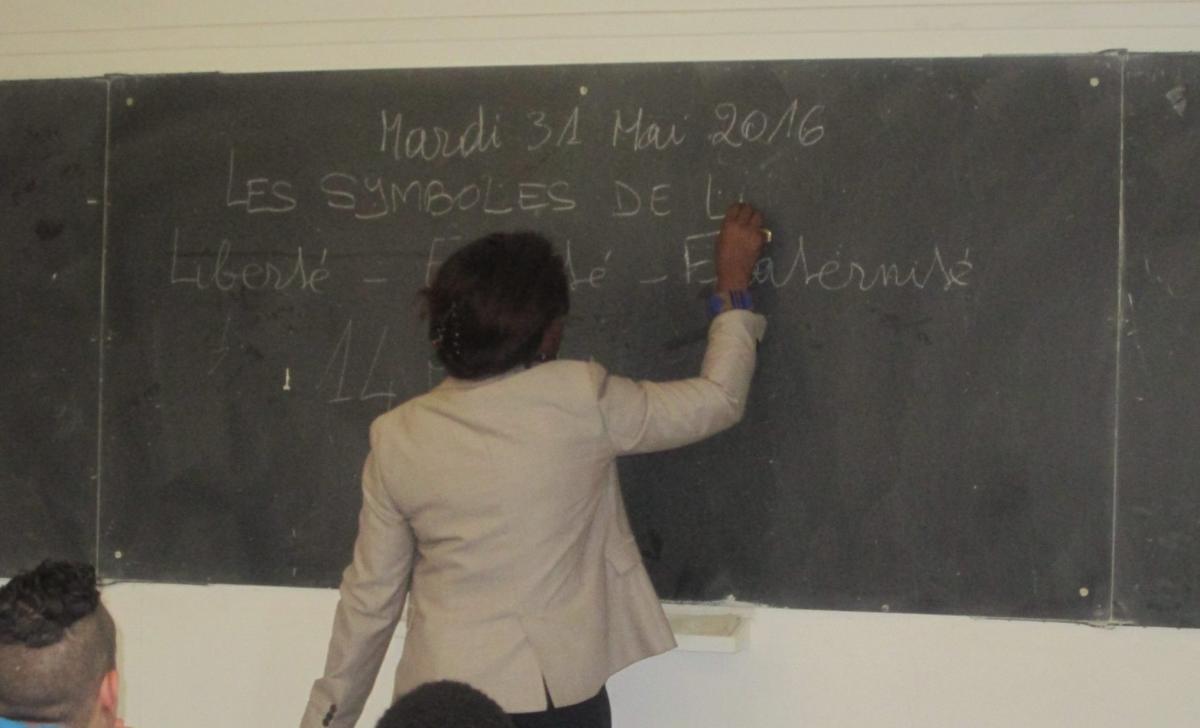 Mardi 31 Mai 2016
LES SYMBOLES DE
Liberté - - Fraternité
14